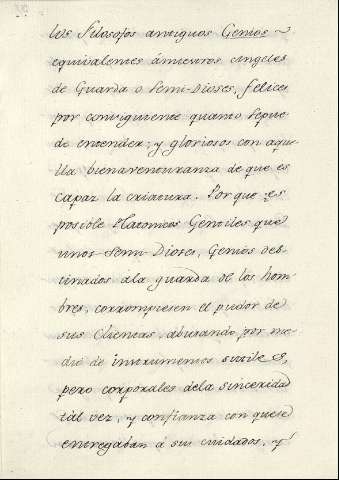 los Filosofos antiguos Genios
equivalentes á nuestros Angeles
de Guarda o Semi-Dioses, felices
por consiguiente quanto se pue
de entender; y gloriosos con aque
lla bienaventuranza de que es
capaz la criatura. Por que es
posible Platonicos Gentiles que
unos Semi-Dioses, Genios des
tinados ala guarda de los hom
bres, corrompiesen el pudor de
sus Clientas, abusando por me
dio de instrumentos sutiles,
pero corporales dela sinceridad
tal vez, y confianza con que se
entregaban á sus cuidados, y